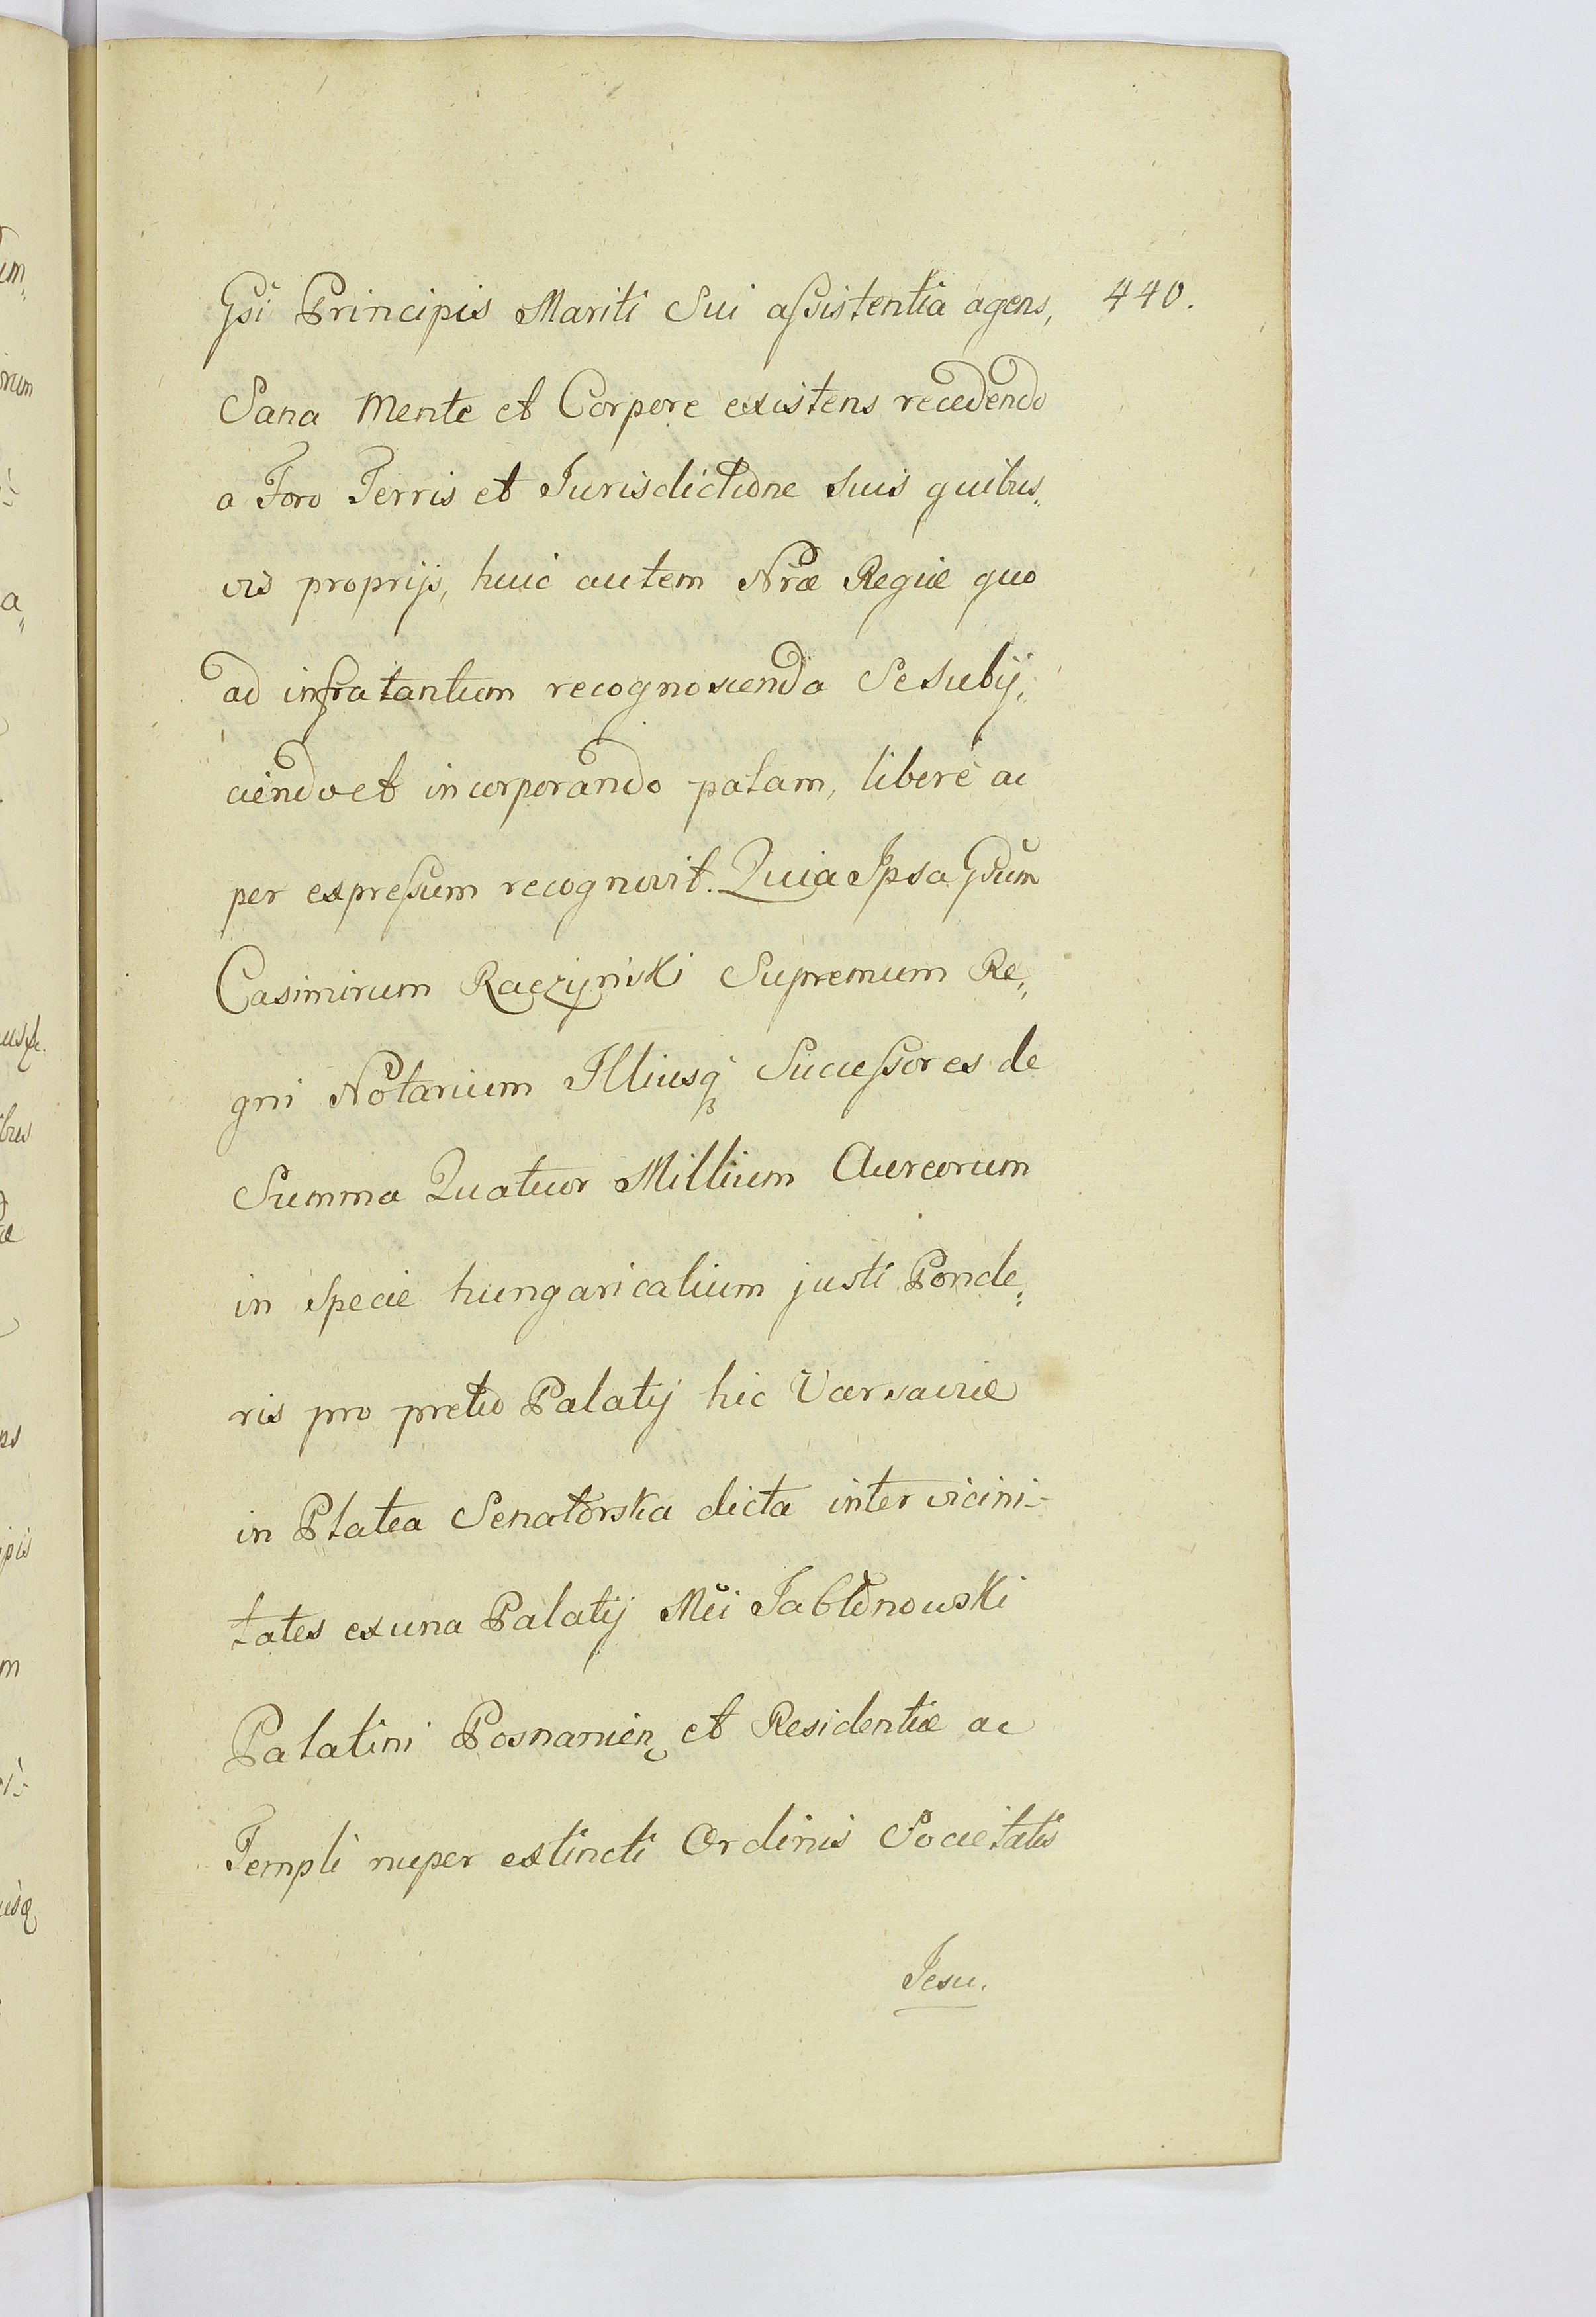 Gsi Principis Mariti Sui aſsistentia agens, 440.
Sana Mente et Corpore existens recedendo
a Foro Terris et Iurisdictione suis quibus„
vis proprijs, huic autem Nrae Regiae quo
ad infra tantum recognoscenda Se subij„
ciendo et incorporando palam, liberè ac
per expreſsum recognovit. Quia Ipsa Gsum
Casimirum Raczyński Supremum Re„
gni Notarium Illiusq Succeſsores de
Summa Quatuor Millium Aureorum
in Specie hungaricalium justi Ponde„
ris pro pretio Palatij hic Varsaviae
in Platea Senatorska dicta inter vicini-
tates ex una Palatij Mci Jabłonowski
Palatini Posnanien et Residentiae ac
Templi nuper extincti Ordinis Societatis
Jesu.